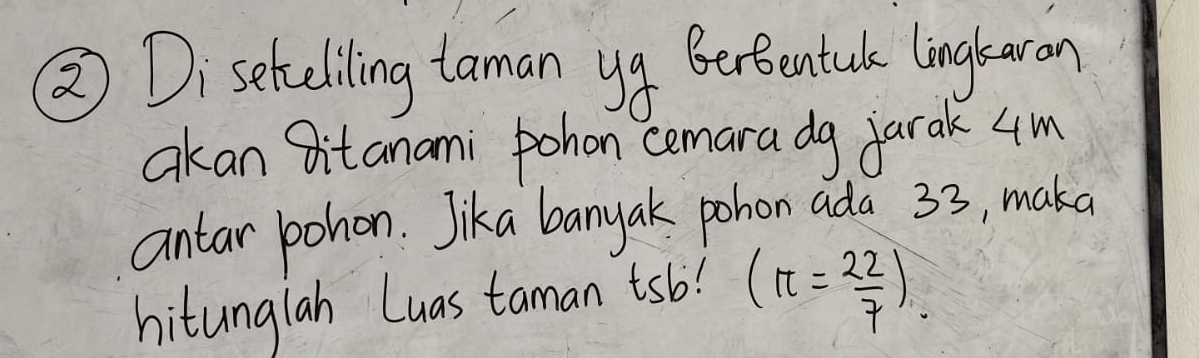 ② Di sekeliling taman yg berbentuk lingkaran
akan ditanami pohon cemara dg jarak 4m
antar pohon. Jika banyak pohon ada 33, maka
hitunglah Luas taman tsb! (π = 22/7).